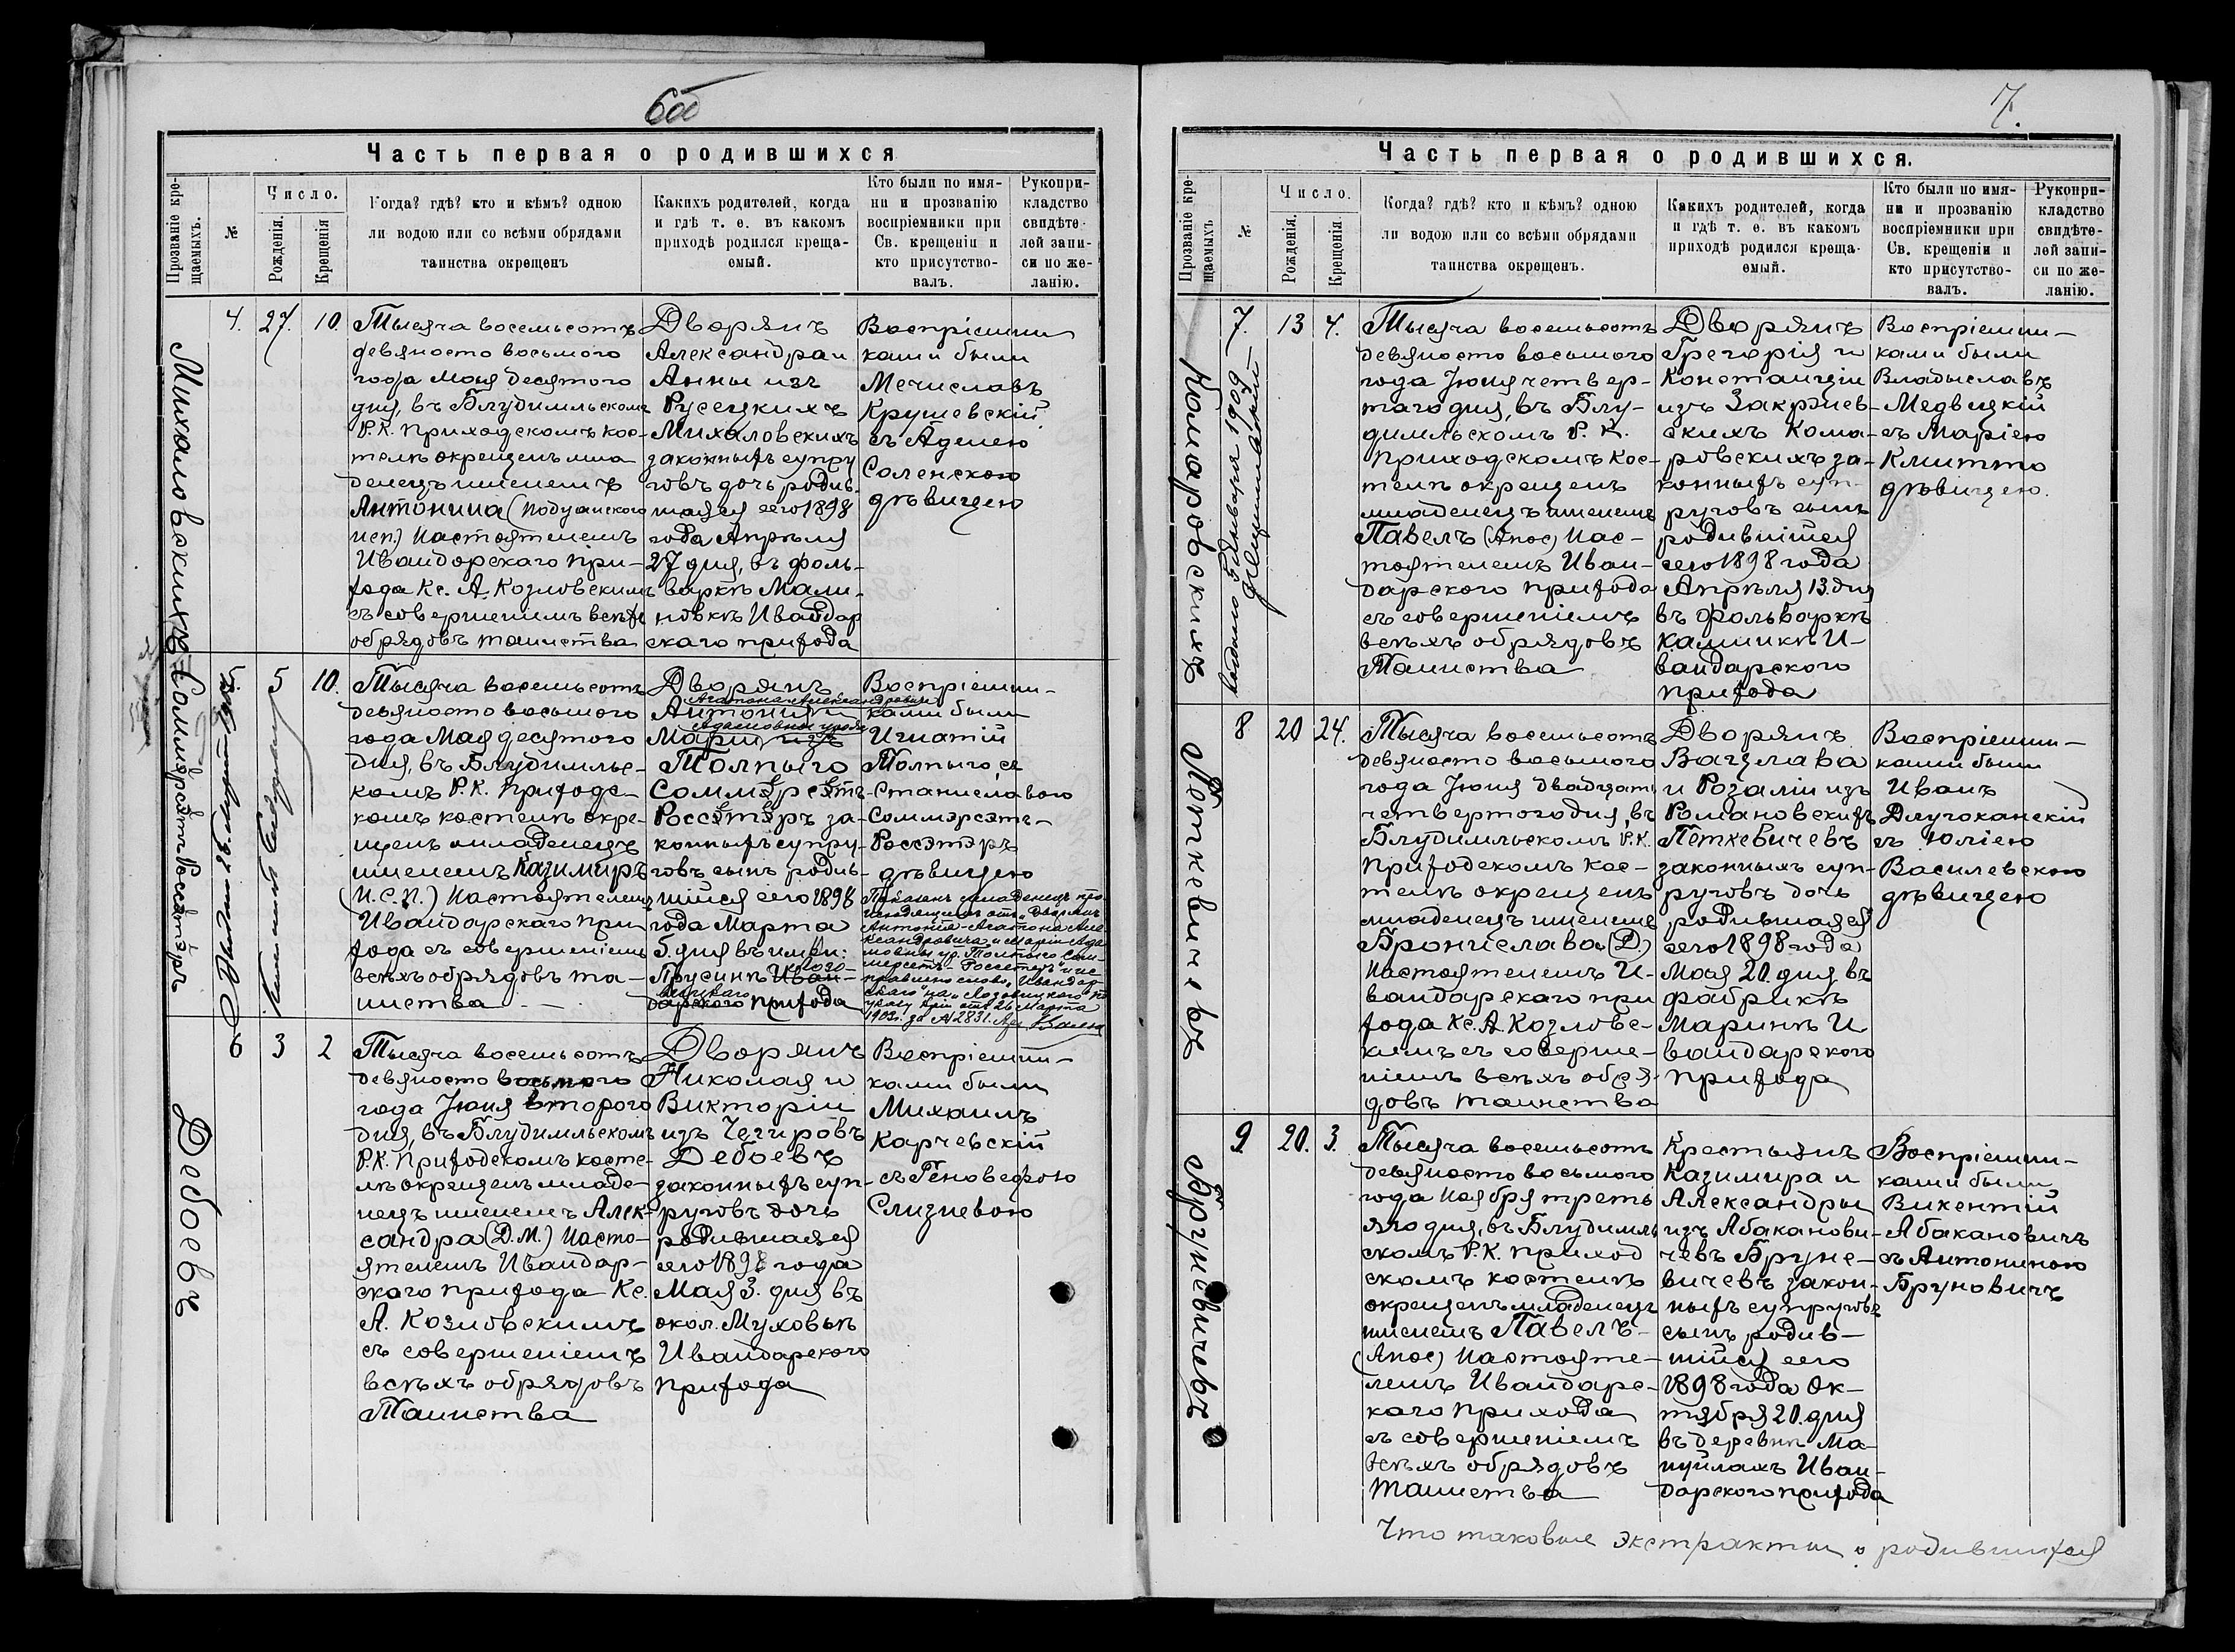 6об
Часть первая о родившихся
Прозваніе кре-
щаемыхъ.
№
Число.
Рожденія.
Крещенія
Когда? гдѣ? кто и кѣмъ? одною
ли водою или со всѣми обрядами
таинства окрещенъ
Какихъ родителей, когда
и гдѣ т. е. въ какомъ
приходѣ родился креща-
емый.
Кто были по имя-
ни и прозванію
воспріемники при
Св. крещеніи и
кто присутство-
валъ.
Рукопри-
кладство
свидѣте-
лей запи-
си по же-
ланію.
Михаловскихъ
4. 27. 10.
Тысяча восемьсотъ
девяносто восьмого
года Мая десятого
дня, въ Блудимльскомъ
Р.К. приходскомъ кос-
телѣ окрещенъ мла
денецъ именемъ
Антонина (Подуанского
исп.) Настоятелемъ
Ивандорскаго при-
хода Кс. А. Козловскимъ
съ совершеніемъ всѣхъ
обрядовъ таинства
Дворянъ
Александра и
Анны изъ
Русецкихъ
Михаловскихъ
законныхъ супру
говъ дочь родив-
шаяся сего 1898
года Апрѣля
27 дня, въ фоль-
варкѣ Мали-
новкѣ Ивандар
скаго прихода
Воспріемни
ками были
Мечиславъ
Крушевскій
съ Аделею
Соленскою
дѣвицею
Соммэрсэтъ Россэтэръ
5. 5 10.
Тысяча восемьсотъ
девяносто восьмого
года Мая десятого
дня, въ Блудимльс-
комъ Р.К. приходс-
комъ костелѣ окре-
щенъ младенецъ
именемъ Казимиръ
(И.С.П.) Настоятелемъ
Ивандарскаго при
хода съ совершеніемъ
всѣхъ обрядовъ та-
инства
Дворянъ
Агатона Александровича
Антонія и
Адамовны урожд
Маріи изъ
Толпыго
Соммерсетъ-
Россетеръ за-
конныхъ супру-
говъ сынъ родив-
шійся сего 1898
года Марта
5. дня въ имѣн:
Трусинѣ Иван-
дарского прихода
Воспріемни-
ками были
Игнатій
Толпыго, съ
Станиславою
Соммэрсэтъ-
Россэтэръ
дѣвицею
Показанъ младенецъ про-
исходящимъ отъ „Дворянъ
Антонія-Агатона Але
ксандровича и Маріи Ада
мовны ур. Толпыго Сом-
мерсетъ-Россетеръ" и ис-
правлено слово „Ивандар
скаго" на „Лозовицкого" по
указу отъ 26 Марта
1903 г. за № 2831.
Дебоевъ
6 3 2
Тысяча восемьсотъ
девяносто восьмого
года Іюня второго
дня, въ Блудимльскомъ
Р.К. Приходскомъ косте-
лѣ окрещенъ младе-
нецъ именемъ Алек-
сандра (Д.М.) Насто-
ятелемъ Ивандар-
ского прихода Кс.
А. Козловскимъ
съ совершеніемъ
всѣхъ обрядовъ
Таинства
Дворянъ
Николая и
Викторіи
изъ Чезировъ
Дебоевъ
законныхъ суп-
руговъ дочь
родившаяся
сего 1898 года
Мая 3. дня въ
окол. Муховѣ
Ивандарского
прихода
Воспріемни-
ками были
Михаилъ
Карчевскій
съ Геновефою
Слизневою
7.
Часть первая о родившихся.
Прозваніе кре-
щаемыхъ
№
Число.
Рожденія.
Крещенія
Когда? гдѣ? кто и кѣмъ? одною
ли водою или со всѣми обрядами
таинства окрещенъ.
Какихъ родителей, когда
и гдѣ т. е. въ какомъ
приходѣ родился креща-
емый.
Кто были по имя-
ни и прозванію
воспріемники при
Св. крещеніи и
кто присутство-
валъ.
Рукопри-
кладство
свидѣте-
лей запи-
си по же-
ланію.
Комаровскихъ
7. 13 4.
Тысяча восемьсотъ
девяносто восьмого
года Іюня четвер-
таго дня, въ Блу-
димльскомъ Р. К.
приходскомъ кос-
телѣ окрещенъ
младенецъ именемъ
Павелъ (Апос) Нас-
тоятелемъ Иван-
дарского прихода
съ совершеніемъ
всѣхъ обрядовъ
Таинства
Дворянъ
Грегорія и
Констанціи
изъ Закржев-
скихъ Кома-
ровскихъ за-
конныхъ суп-
руговъ сынъ
родившійся
сего 1898 года
Апрѣля 13. дня
въ фольваркѣ
Каминкѣ И-
вандарского
прихода
Воспріемни-
ками были
Владыславъ
Медвецкій
съ Маріею
Клитто
дѣвицею.
Петкевичевъ
8 20 24.
Тысяча восемьсотъ
девяносто восьмого
года Іюня двадцать
четвертого дня, въ
Блудимльскомъ Р.К.
Приходскомъ кос-
телѣ окрещенъ
младенецъ именемъ
Бронислава (Д)
Настоятелемъ И-
вандарскаго при
хода Кс. А. Козловс-
кимъ съ соверше-
ніемъ всѣхъ обря-
довъ таинства
Дворянъ
Вацлава
и Розаліи изъ
Романовскихъ
Петкевичевъ
законныхъ суп-
руговъ дочь
родившаяся
сего 1898 года
Мая 20. дня въ
фабрикѣ
Маринѣ И
вандарского
прихода
Воспріемни-
ками были
Иванъ
Длугоканскій
съ Юліею
Василевскою
дѣвицею
Бруневичевъ
9 20. 3.
Тысяча восемьсотъ
девяносто восьмого
года Ноября треть
яго дня, въ Блудимль
скомъ Р.К. приход
скомъ костелѣ
окрещенъ младенецъ
именемъ Павелъ-
(Апос) Настояте-
лемъ Ивандарс-
каго прихода
съ совершеніемъ
всѣхъ обрядовъ
таинства
Крестьянъ
Казимира и
Александры
изъ Абаканови-
чевъ Бруне-
вичевъ закон-
ныхъ супруговъ
сынъ родив-
шійся сего
1898 года Ок-
тября 20. дня
въ деревнѣ Ма-
нуйлахъ Иван-
дарского прихода
Воспріемни-
ками были
Викентій
Абакановичъ
съ Антониною
Бруновичъ
Что таковые экстракты о родившихся